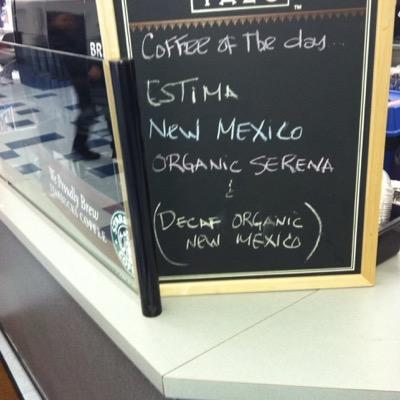 TM
COFFEE OF THE day...
ESTIMA
NEW MEXICO
ORGANIC SERENA
&
(DECAF ORGANIC
NEW MEXICO)
BR
We Proudly Brew
STARBUCKS COFFEE